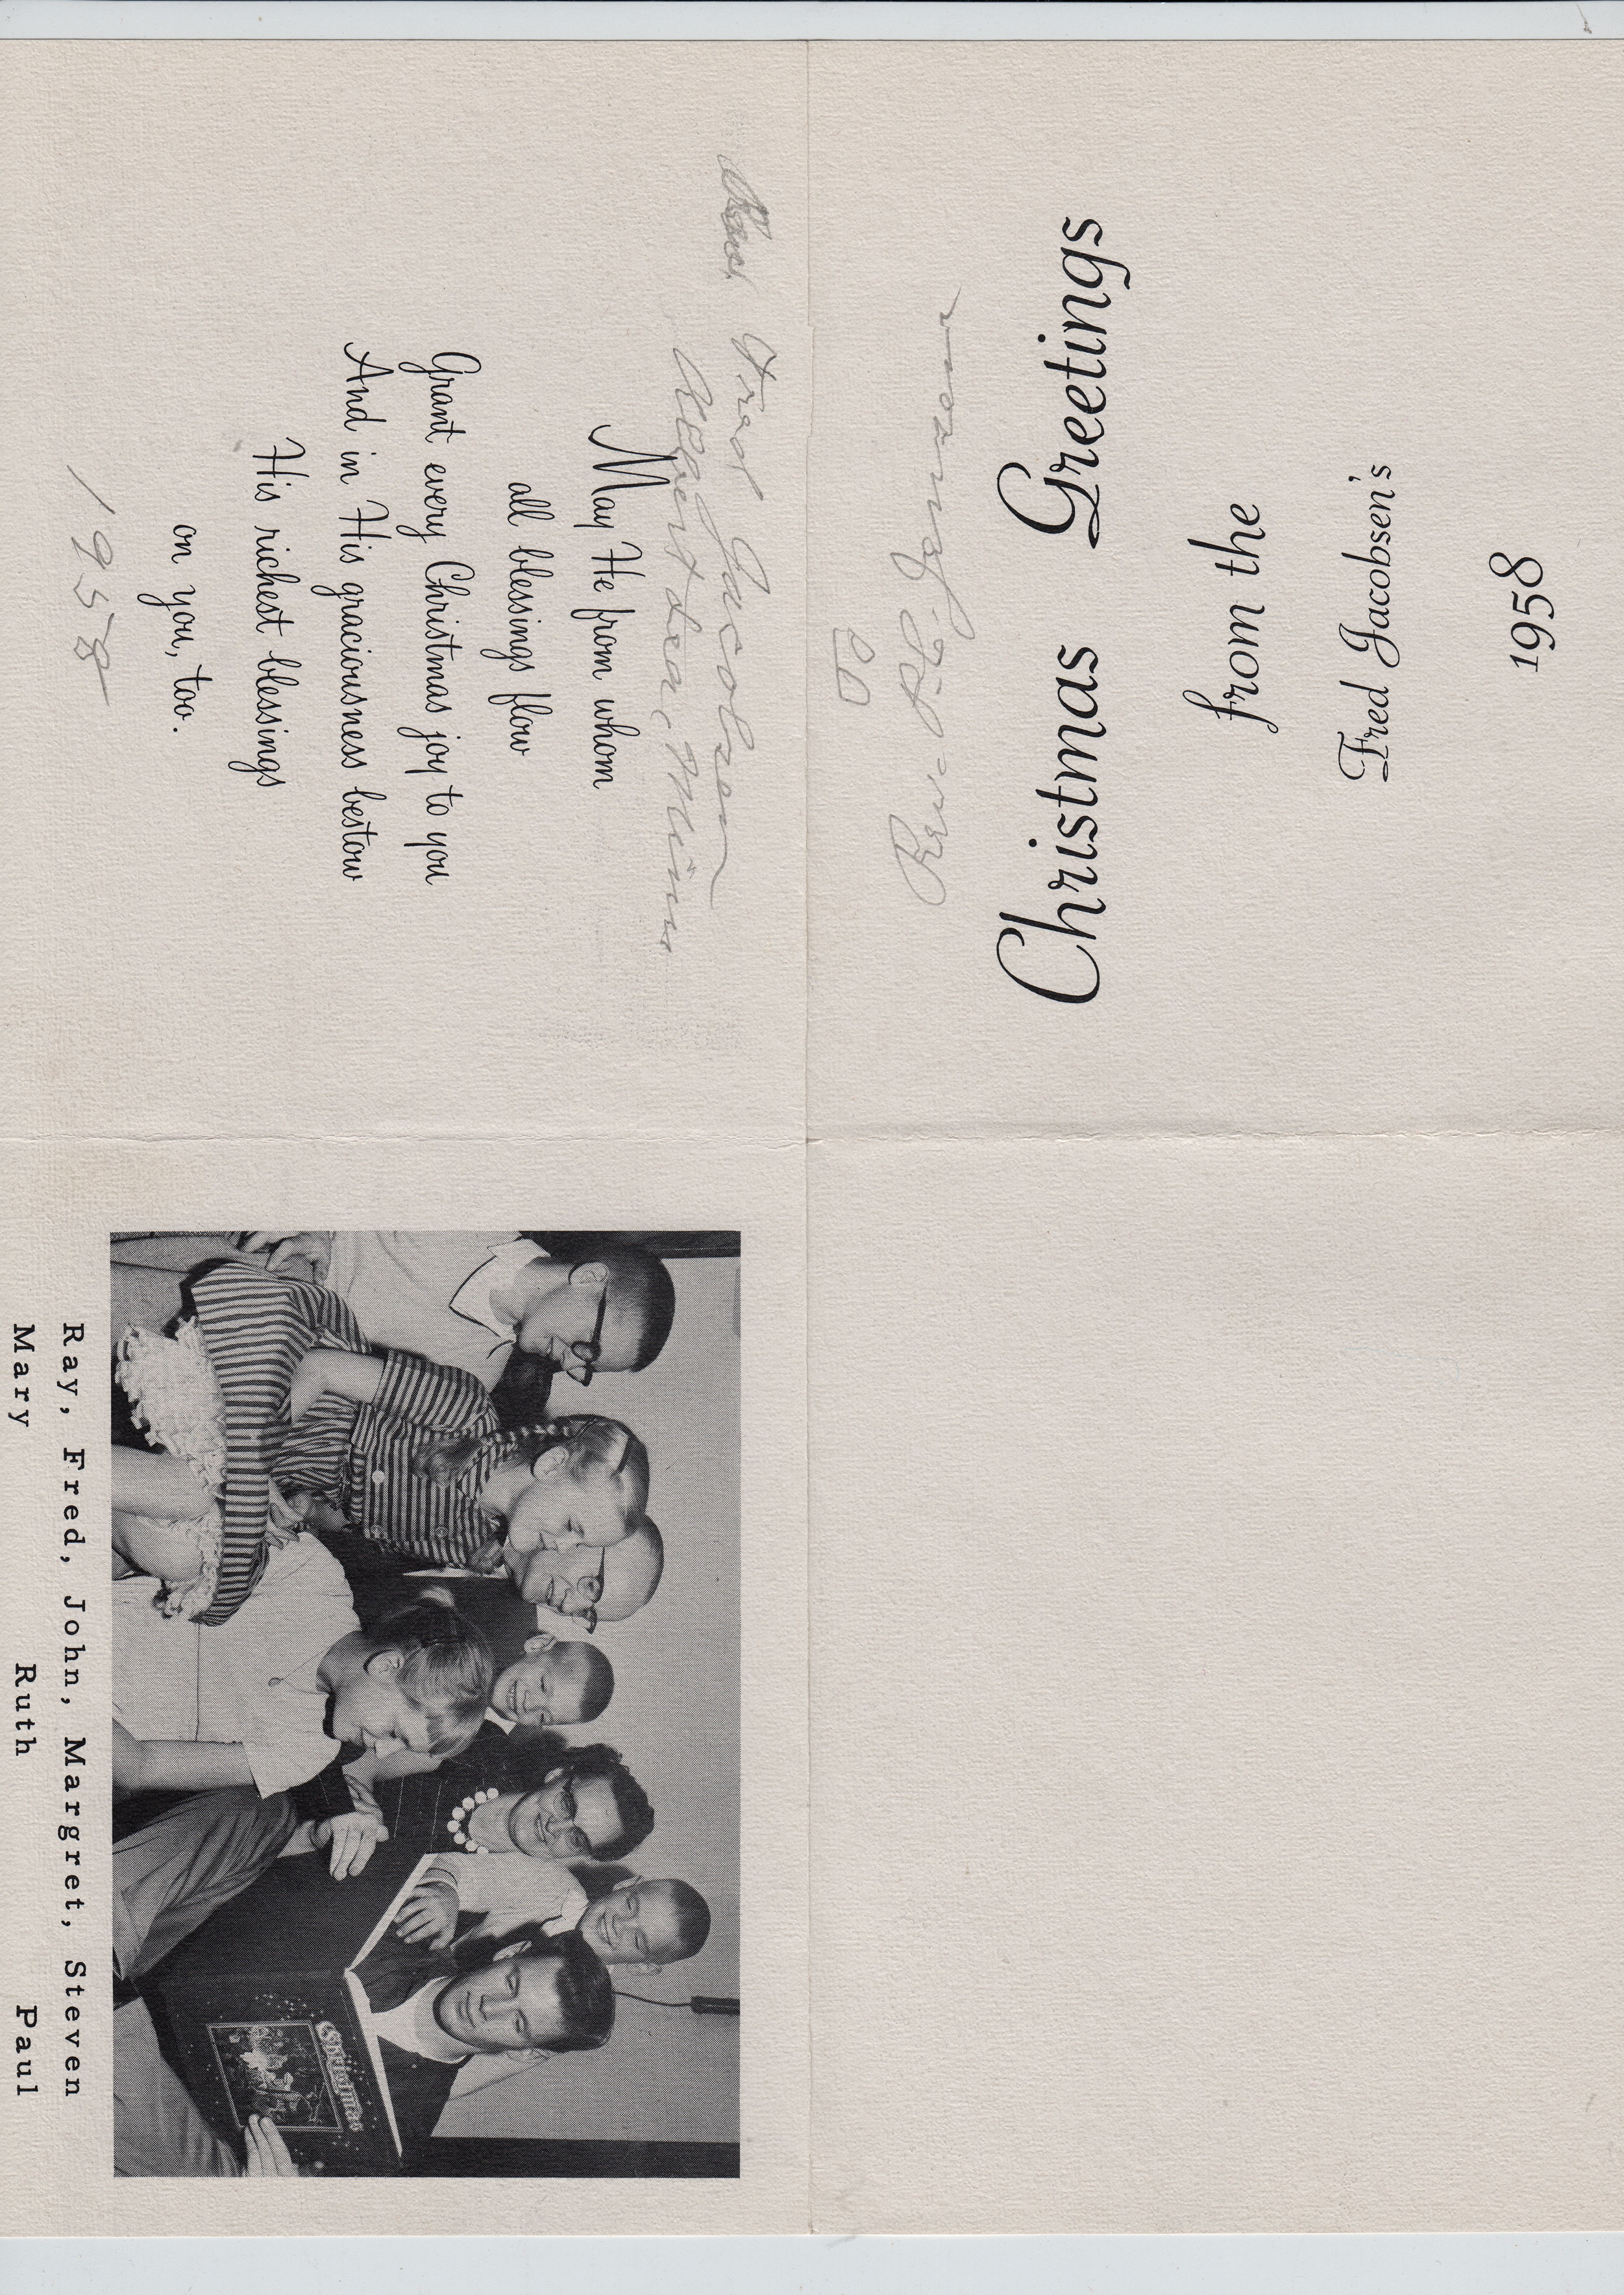 Christmas Greetings
from the
Fred Jacobsen's
1958
To
Rev. P. C. Jensen
Fred Jacobsen
Minn
May He from whom
all blessings flow
Grant every Christmas joy to you
And in His graciousness bestow
His richest blessings
on you, too.
1958
Christmas
Ray, Fred, John, Margret, Steven
Mary Ruth Paul